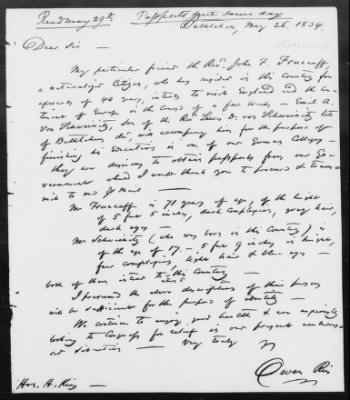 Read May 29th Passports sent same day
Bethlehem, May 26. 1834.
Dear Sir —
My particular friend the Revd John F. Frueauff,
a naturalized Citizen, who has resided in this Country for
upwards of 40 years, intends to visit England and the Con-
tinent of Europe in the course of a few weeks — Emil A.
von Schweinitz, son of the Revd Lewis D. von Schweinitz late
of Bethlehem, decd will accompany him for the purpose of
finishing his Education in one of our German Colleges —
they are desirous to obtain passports from our Go-
vernment which I would thank you to procure & trans-
mit to me by Mail —
Mr Frueauff is 71 years of age, of the height
of 5 feet 5 inches, dark complexion, grey hair,
dark eyes —
Mr Schweinitz (who was born in this Country) is
of the age of 17 — 5 feet 9 inches in height,
fair complexion, light hair & blue eyes —
both of them intend to this Country —
I presume the above description of their persons
will be sufficient for the purpose of identity —
We continue to enjoy good health & are anxiously
looking to Congress for relief in our present
our distresses — Very truly
Owen Rice
Hon. H. King —